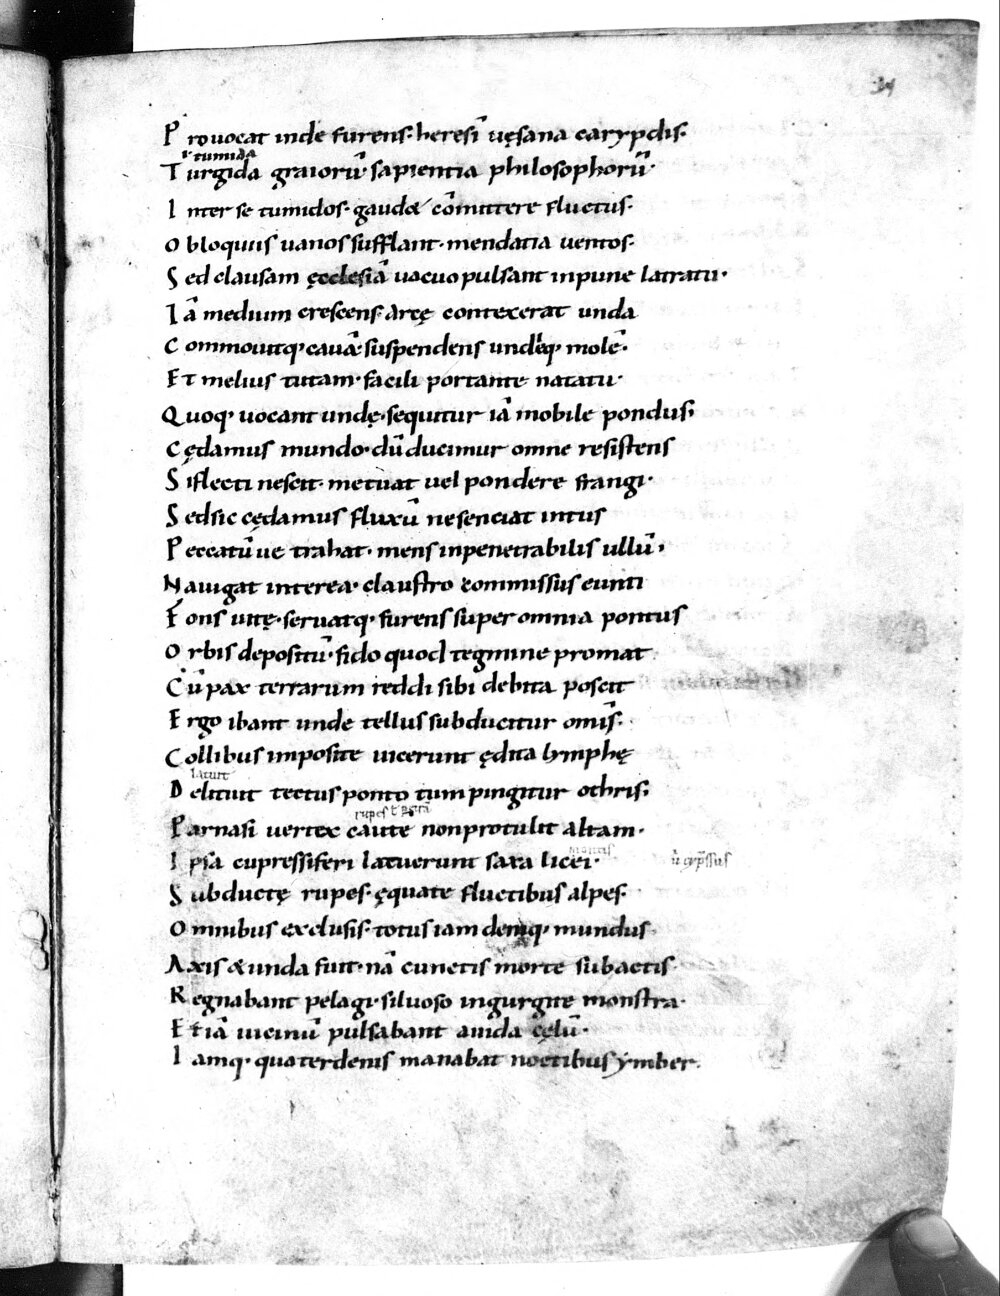 Prouocat inde furens· heresī uęsana carypdis·
ł tumida
Turgida graiorū sapientia philosophorū·
Inter se tumidos· gaudet cōmittere fluctus·
Obloquiis uanos sufflant· mendatia uentos·
Sed clausam ęcclesiā uacuo pulsant inpune latratu·
Iā medium crescens arcę contexerat unda
Commouitq· cauā suspendens undiq· molē·
Et melius tutam· facili portante natatu·
Quoq· uocant undę· sequitur iā mobile pondus·
Cędamus mundo· dū ducimur omne resistens
Si flecti nescit· metuat uel pondere frangi·
Sed sic cędamus fluxū ne senciat intus
Peccatū ue trahat· mens inpenetrabilis ullū·
Nauigat interea· claustro commissus eunti
Fons uitę· seruatq· furens super omnia pontus
Orbis depositū· fido quod tegmine promat
Cū pax terrarum reddi sibi debita poscit
Ergo ibant undę tellus subducitur omīs·
Collibus imposite uicerunt ędita lymphę
latuit
Delituit tectus ponto tum pingitur othris·
Parnasi uertex caute non protulit altam·
montis
Ipsa cupressiferi latuerunt saxa licei·
Subductę rupes· ęquate fluctibus alpes·
Omnibus exclusis· totus iam deniq· mundus
Axis & unda fuit· nā cunctis morte subactis·
Regnabant pelagi· siluoso ingurgite monstra·
Et iā uicinū pulsabant auida cęlū·
Iamq· quaterdenis manabat noctibus ymber·